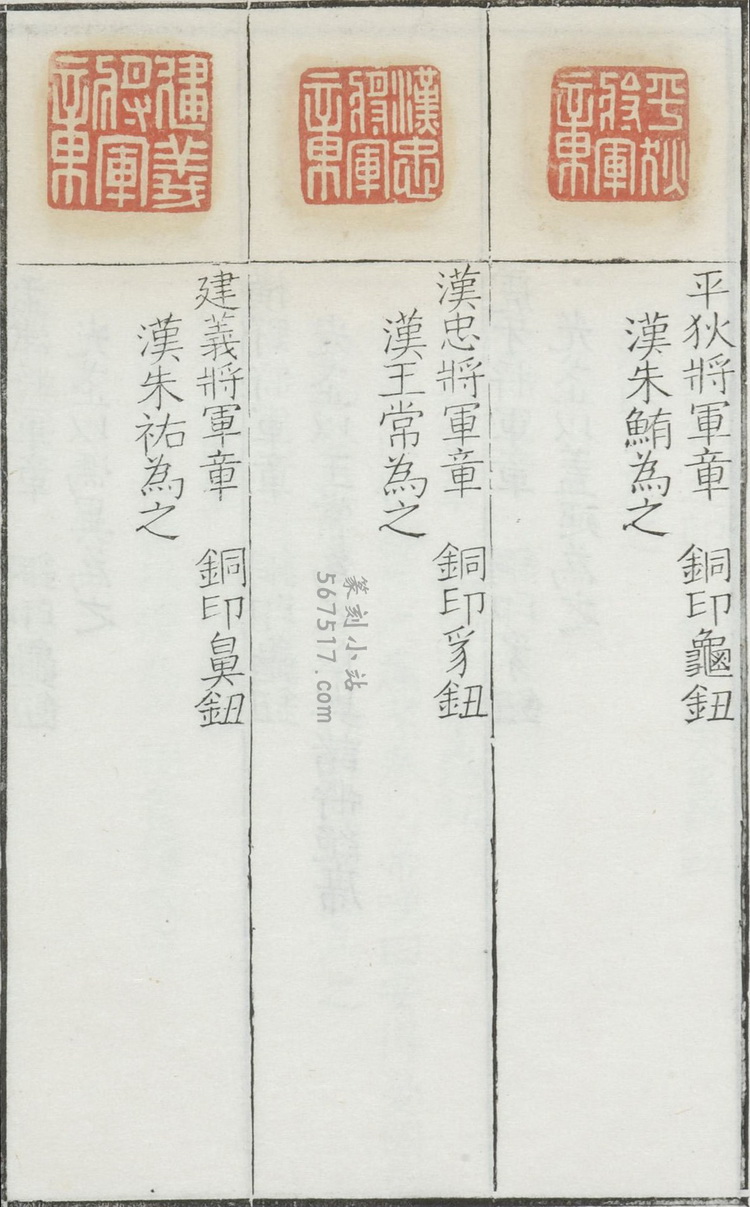 平狄將軍章
平狄將軍章 銅印龜鈕
漢朱鮪為之
漢忠將軍章
漢忠將軍章 銅印豸鈕
漢王常為之
建義將軍章
建義將軍章 銅印鼻鈕
漢朱祐為之
篆刻小站
567517.com